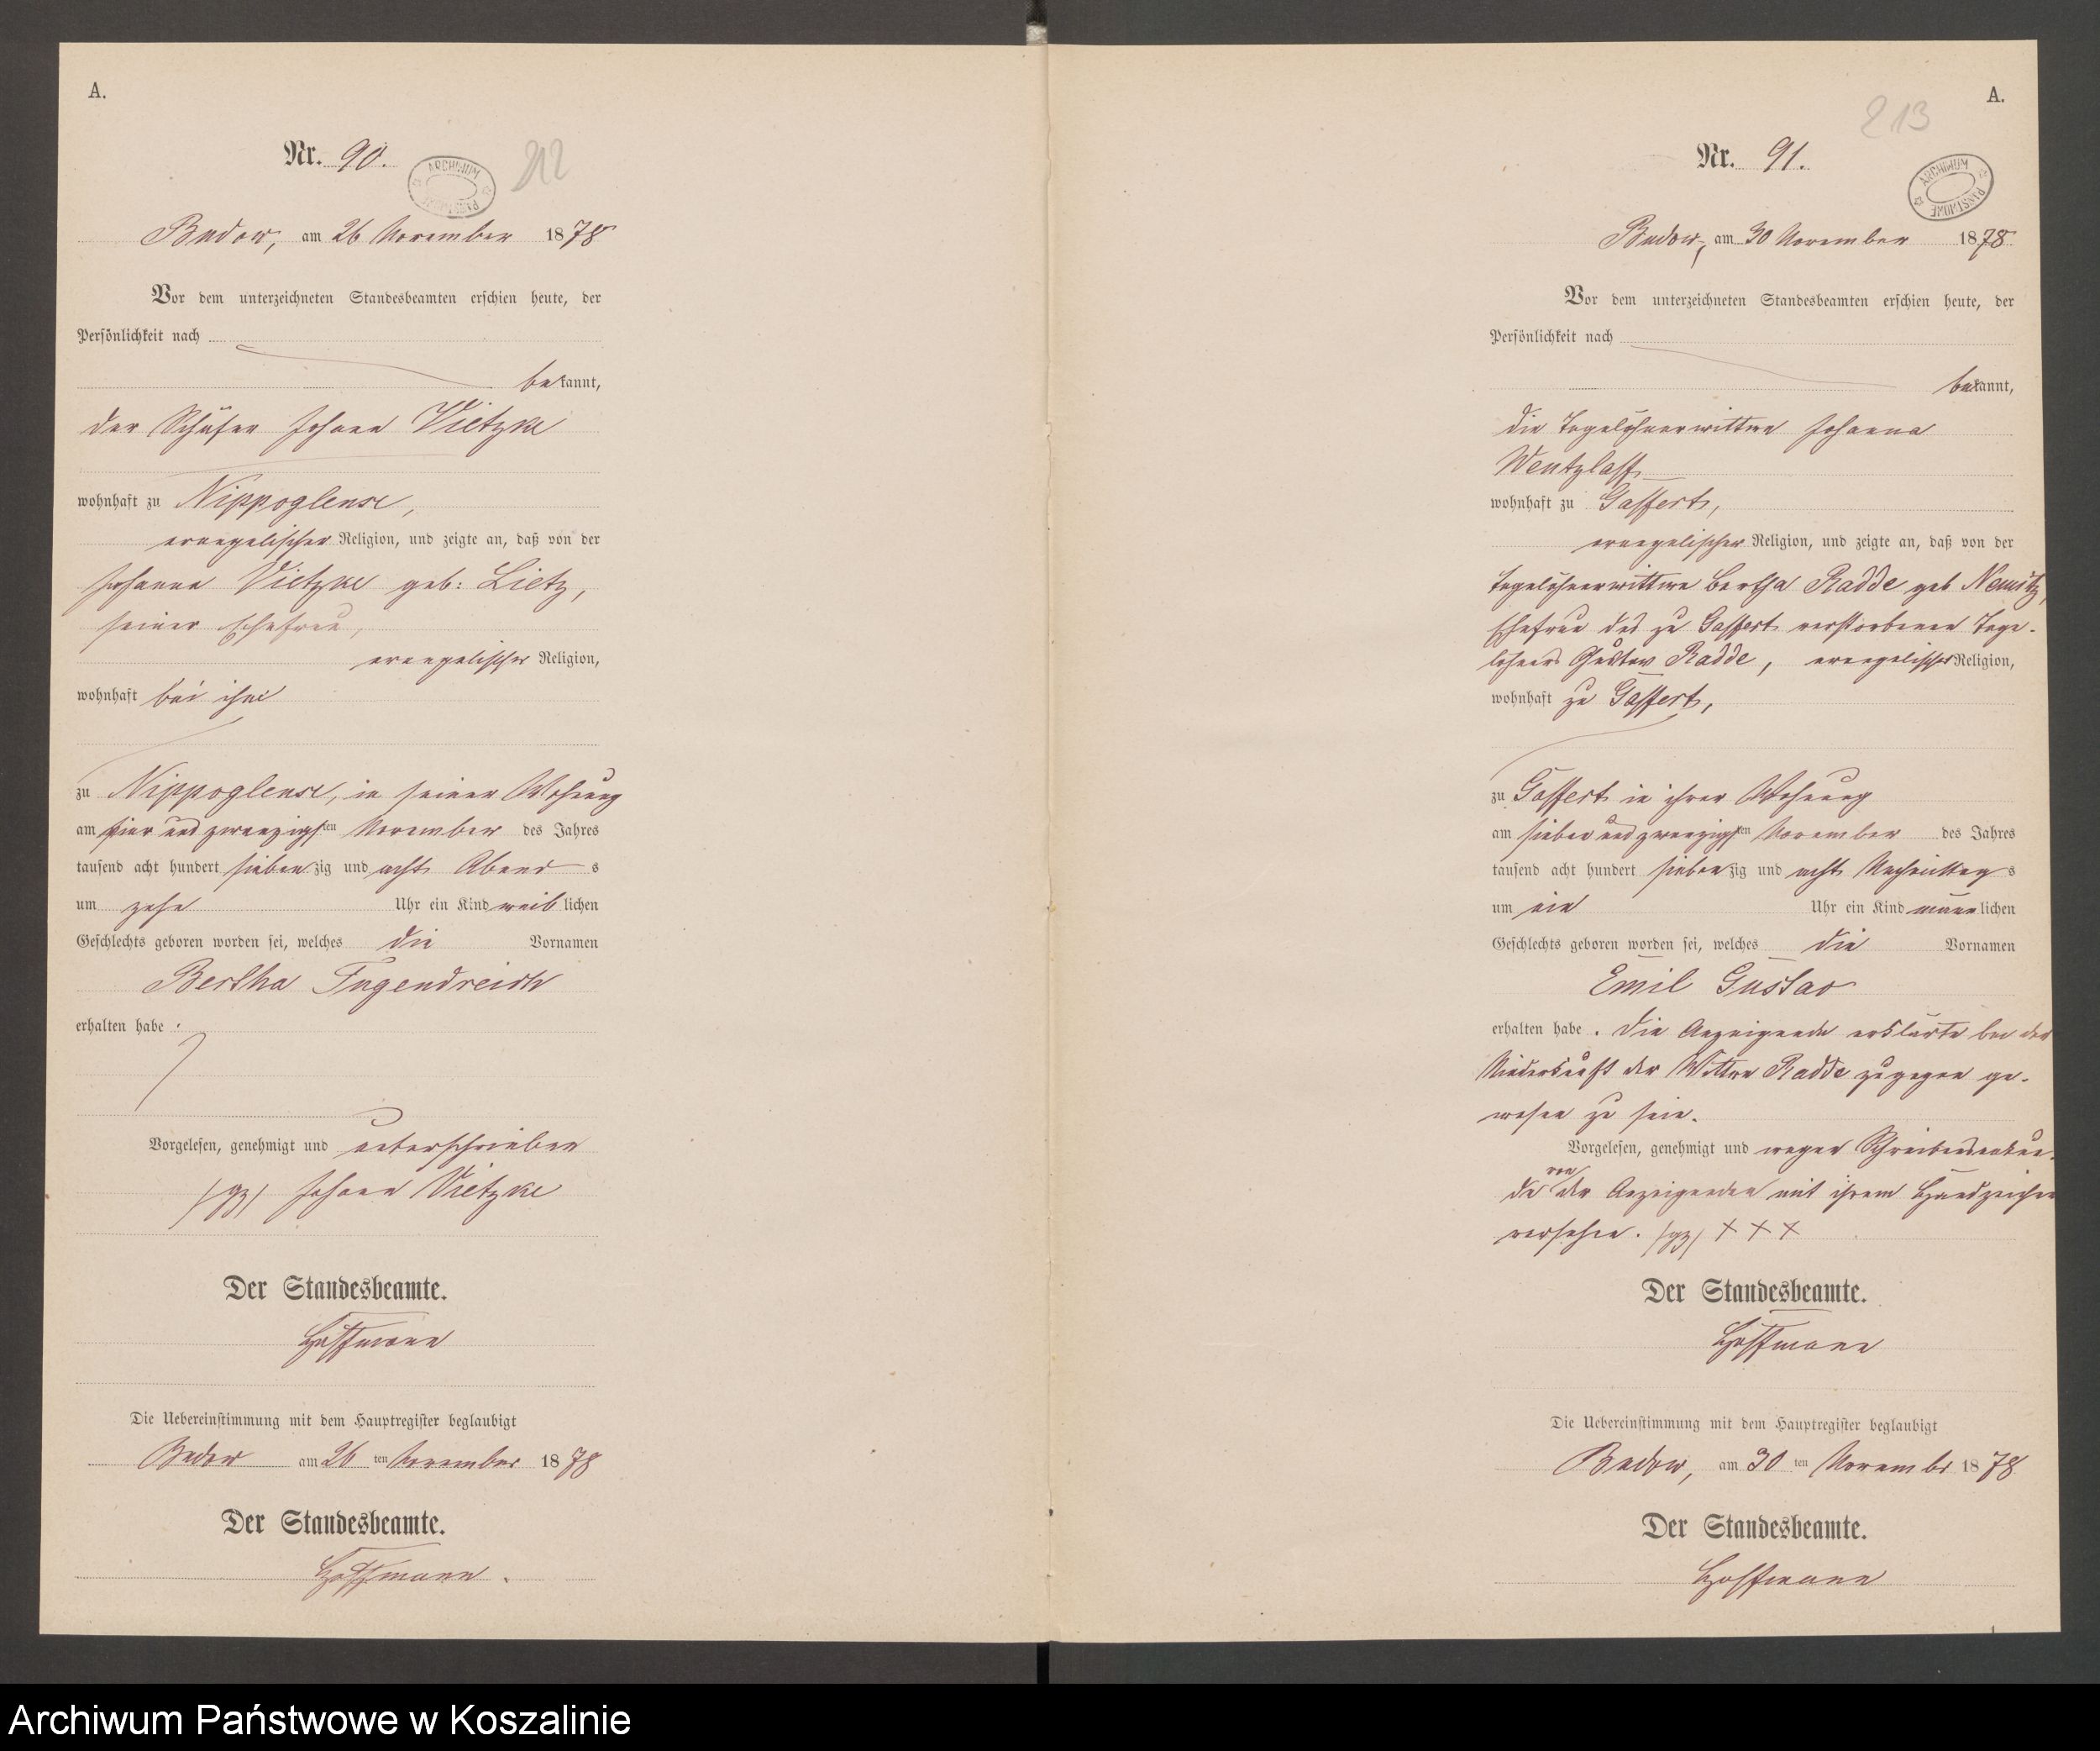 A.
Nr. 90.
ARCHIWUM PAŃSTWOWE
212
Budow, am 26 November 1878
Vor dem unterzeichneten Standesbeamten erschien heute, der
Persönlichkeit nach
bekannt,
der Schäfer Johann Vietzke
wohnhaft zu Nippoglense,
evangelischer Religion, und zeigte an, daß von der
Johanna Vietzke geb: Lietz,
seiner Ehefrau,
evangelischer Religion,
wohnhaft bei ihm
zu Nippoglense, in seiner Wohnung
am vier und zwanzigsten November des Jahres
tausend acht hundert siebenzig und acht Abends
um zehn Uhr ein Kind weiblichen
Geschlechts geboren worden sei, welches die Vornamen
Bertha Tugendreich
erhalten habe.
Vorgelesen, genehmigt und unterschrieben
/gz/ Johann Vietzke
Der Standesbeamte.
Hoffmann
Die Uebereinstimmung mit dem Hauptregister beglaubigt
Budow am 26ten November 1878
Der Standesbeamte.
Hoffmann.
A.
213
Nr. 91.
ARCHIWUM PAŃSTWOWE
Budow, am 30 November 1878
Vor dem unterzeichneten Standesbeamten erschien heute, der
Persönlichkeit nach
bekannt,
die Tagelöhnerwittwe Johanna
Wentzlaff
wohnhaft zu Gaffert,
evangelischer Religion, und zeigte an, daß von der
Tagelöhnerwittwe Bertha Radde geb Nemitz,
Ehefrau des zu Gaffert verstorbenen Tage-
löhners Gustav Radde, evangelischer Religion,
wohnhaft zu Gaffert,
zu Gaffert in ihrer Wohnung
am sieben und zwanzigsten November des Jahres
tausend acht hundert siebenzig und acht Nachmittags
um ein Uhr ein Kind männlichen
Geschlechts geboren worden sei, welches die Vornamen
Emil Gustav
erhalten habe. Die Anzeigende erklärte bei der
Niederkunft der Wittwe Radde zugegen ge-
wesen zu sein.
Vorgelesen, genehmigt und wegen Schreibensunkun-
de von der Anzeigenden mit ihrem Handzeichen
versehen. /gz/ + + +
Der Standesbeamte.
Hoffmann
Die Uebereinstimmung mit dem Hauptregister beglaubigt
Budow, am 30ten Novembr 1878
Der Standesbeamte.
Hoffmann
Archiwum Państwowe w Koszalinie